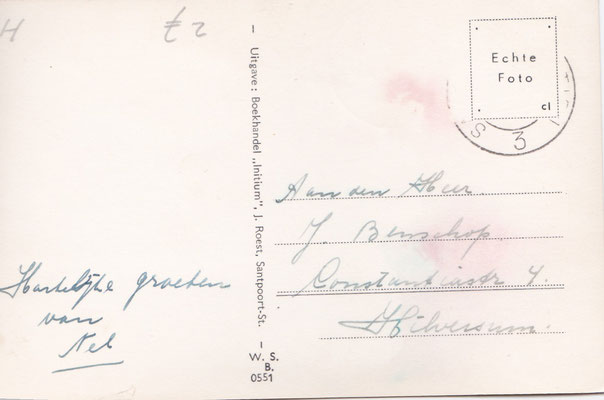 H
£2
Echte
Foto
cl
S 3
Uitgave: Boekhandel „Initium", J. Roest, Santpoort-St.
W. S.
B.
0551
Aan den Heer
J. Benschop
Constantiastr 4.
Hilversum.
Hartelijke groeten
van
Nel